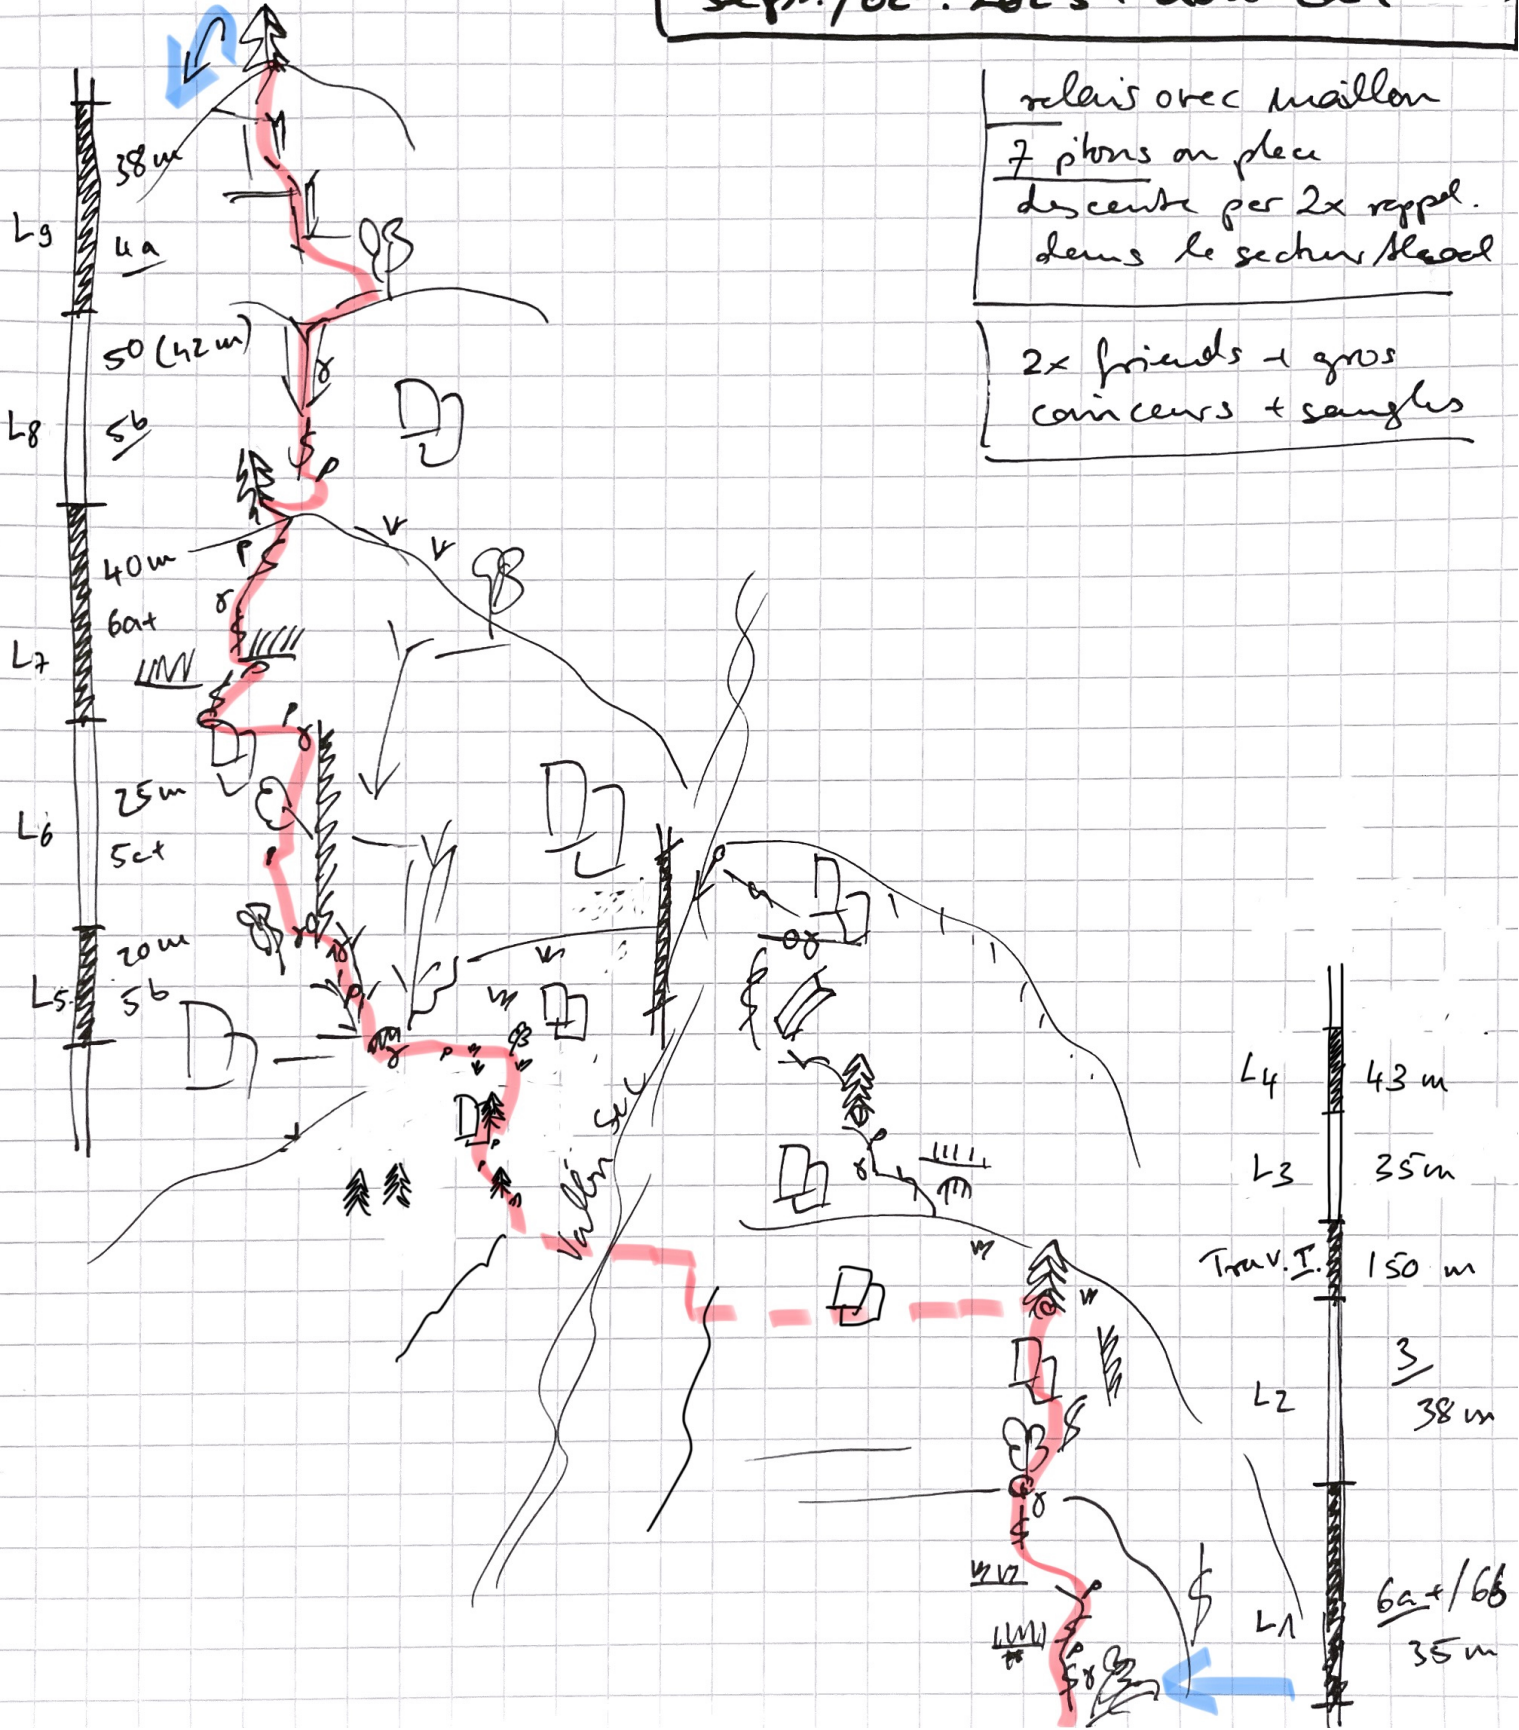 relais avec maillon
7 pitons en place
descente par 2x rappel.
dans le secteur
2x friends + gros
coinceurs + sangles
38m
L9
4a
50 (42m)
L8
5b
40m
6a+
L7
25m
L6
5c+
20m
L5
5b
Vallon Sec
L4 43 m
L3 35m
Trav. I. 150 m
3
L2
38m
6a+/6b
L1
35m